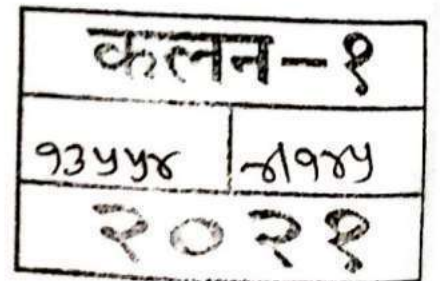 कलन-१
१३५५४ २/१४५
२०२१